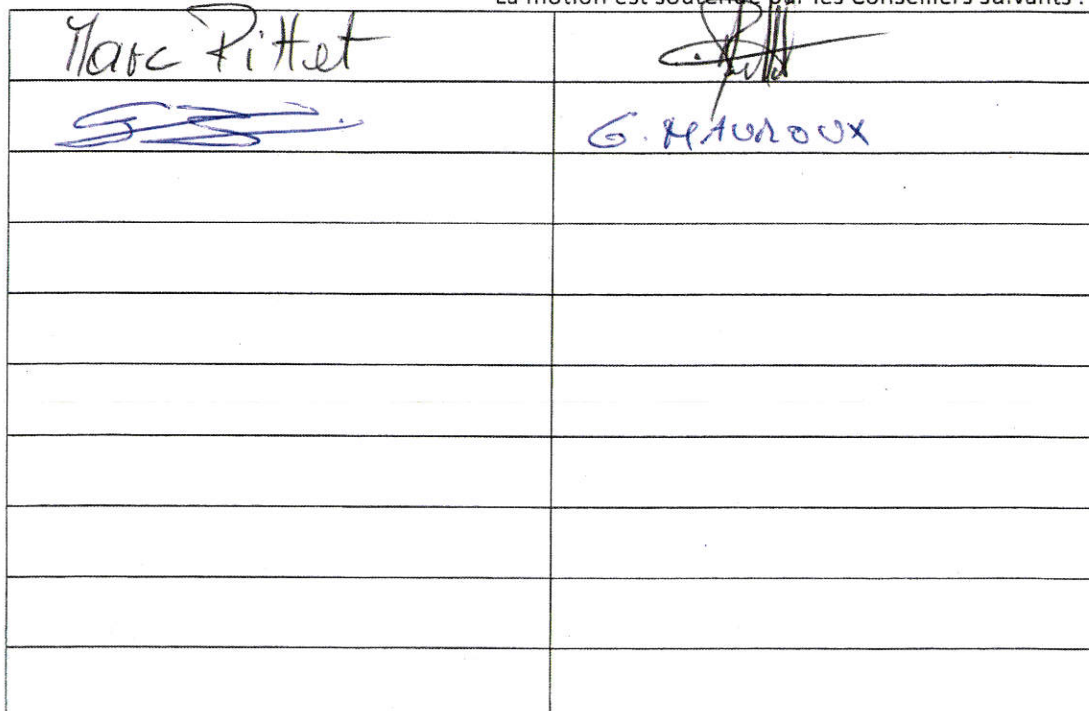 La motion est soutenue par les Conseillers suivants :
Marc Pittet
G. MAUROUX